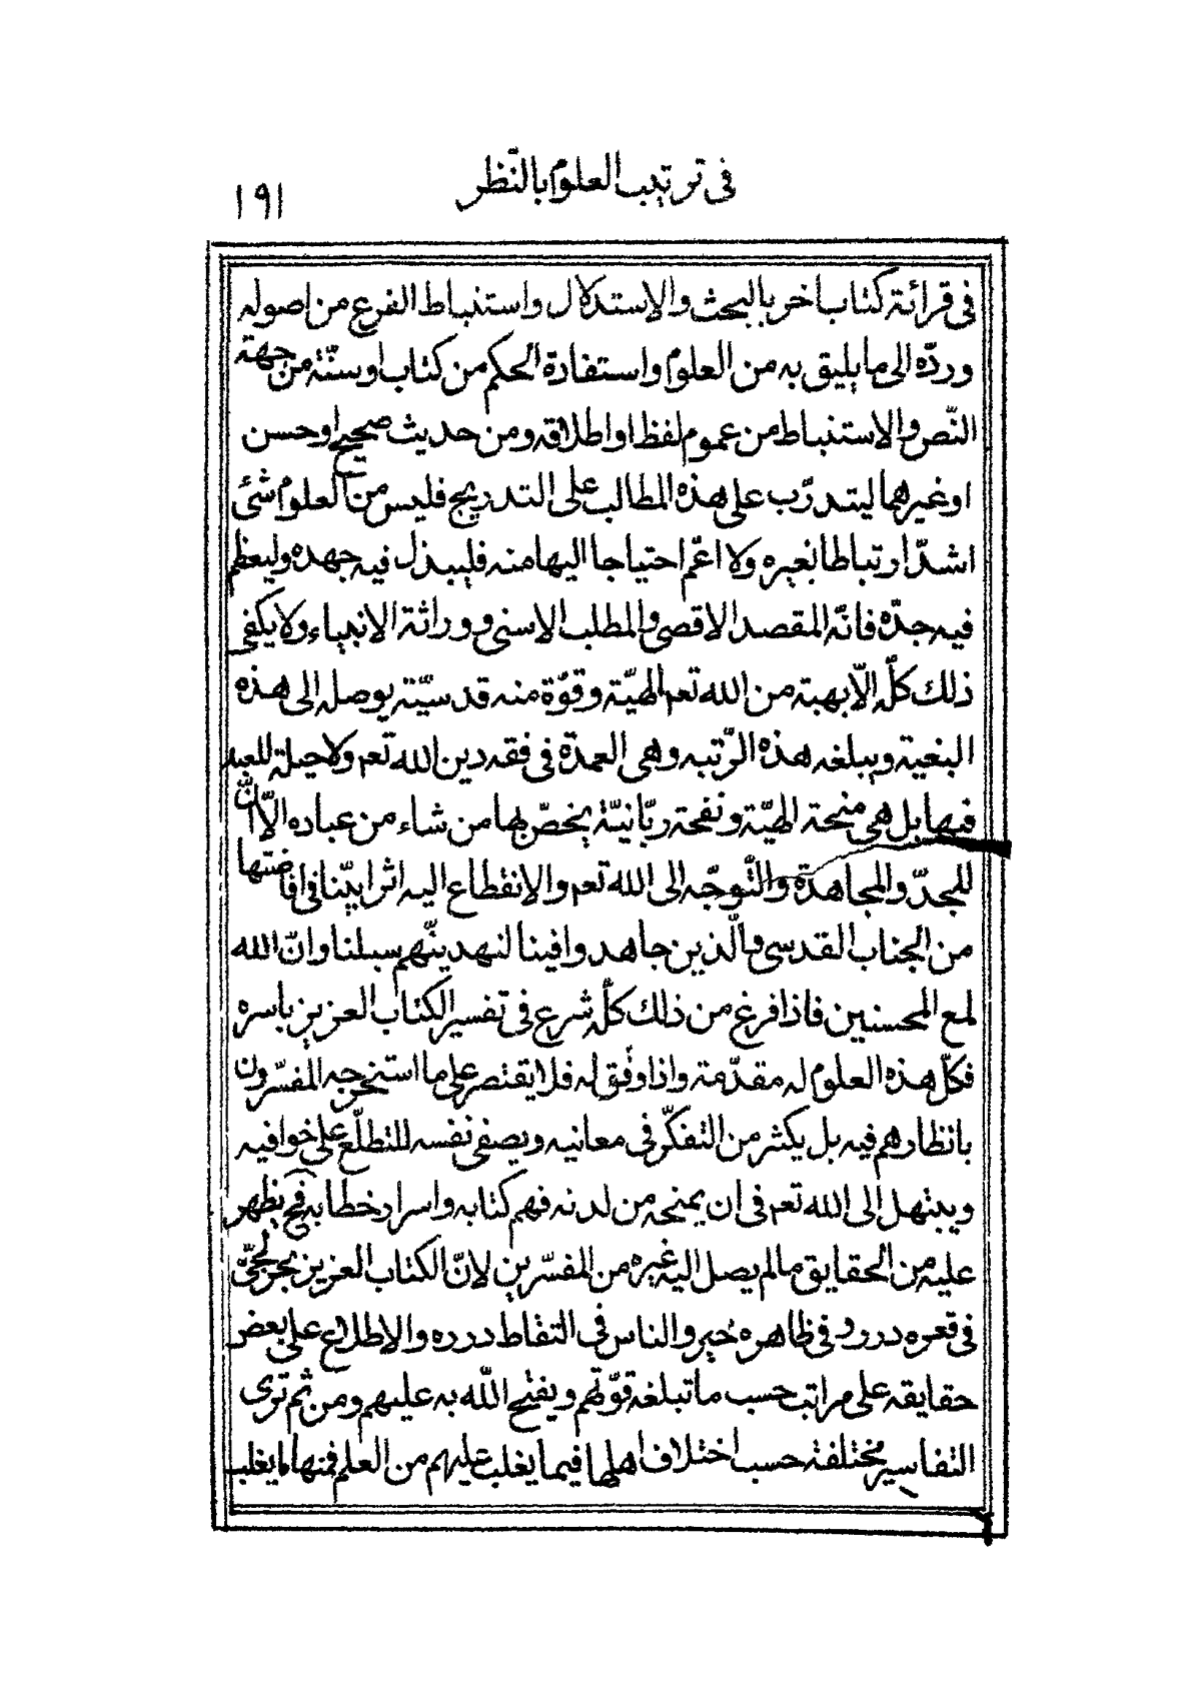 فى ترتيب العلوم بالنّظر
١٩١
فى قرائة كتاب اخر بالبحث والاستدلال واستنباط الفرع من اصوله
وردّه الى ما يليق به من العلوم واستفادة الحكم من كتاب او سنّة من جهة
النّص والاستنباط من عموم لفظ او اطلاقه ومن حديث صحيح او حسن
او غيرهما ليتدرّب على هذه المطالب على التدريج فليس من العلوم شئ
اشدّ ارتباطا بغيره ولا اعمّ احتياجا اليها منه فليبذل فيه جهده وليعظم
فيه جدّه فانّه المقصد الاقصى والمطلب الاسنى ووراثة الانبياء ولا يكفى
ذلك كلّه الّا بهبة من الله تعم الهيّة وقوّة منه قدسيّة يوصله الى هذه
البغية ويبلغه هذه الرّتبه وهى العمدة فى فقه دين الله تعم ولا حيلة للعبد
فيها بل هى منحة الهيّة ونفحة ربّانيّة يخصّ بها من شاء من عباده الّا انّ
للمجدّ والمجاهدة والتّوجّه الى الله تعم والانقطاع اليه اثرا بيّنا فى افاضتها
من الجناب القدسى والّذين جاهدوا فينا لنهدينّهم سبلنا وانّ الله
لمع المحسنين فاذا فرغ من ذلك كلّه شرع فى تفسير الكتاب العزيز باسره
فكلّ هذه العلوم له مقدّمة واذا وفّق له فلا يقتصر على ما استخرجه المفسّرون
بانظارهم فيه بل يكثر من التفكّر فى معانيه ويصفى نفسه للتطلّع على خوافيه
ويبتهل الى الله تعم فى ان يمنحه من لدنه فهم كتابه واسرار خطابه فح يظهر
عليه من الحقايق ما لم يصل اليه غيره من المفسّرين لانّ الكتاب العزيز بحر لجّىّ
فى قعره درر وفى ظاهره خبر والناس فى التقاط درره والاطلاع على بعض
حقايقه على مراتب حسب ما تبلغه قوّتهم ويفتح الله به عليهم ومن ثم ترى
التفاسير مختلفة حسب اختلاف اهلها فيما يغلب عليهم من العلم فمنها ما يغلب